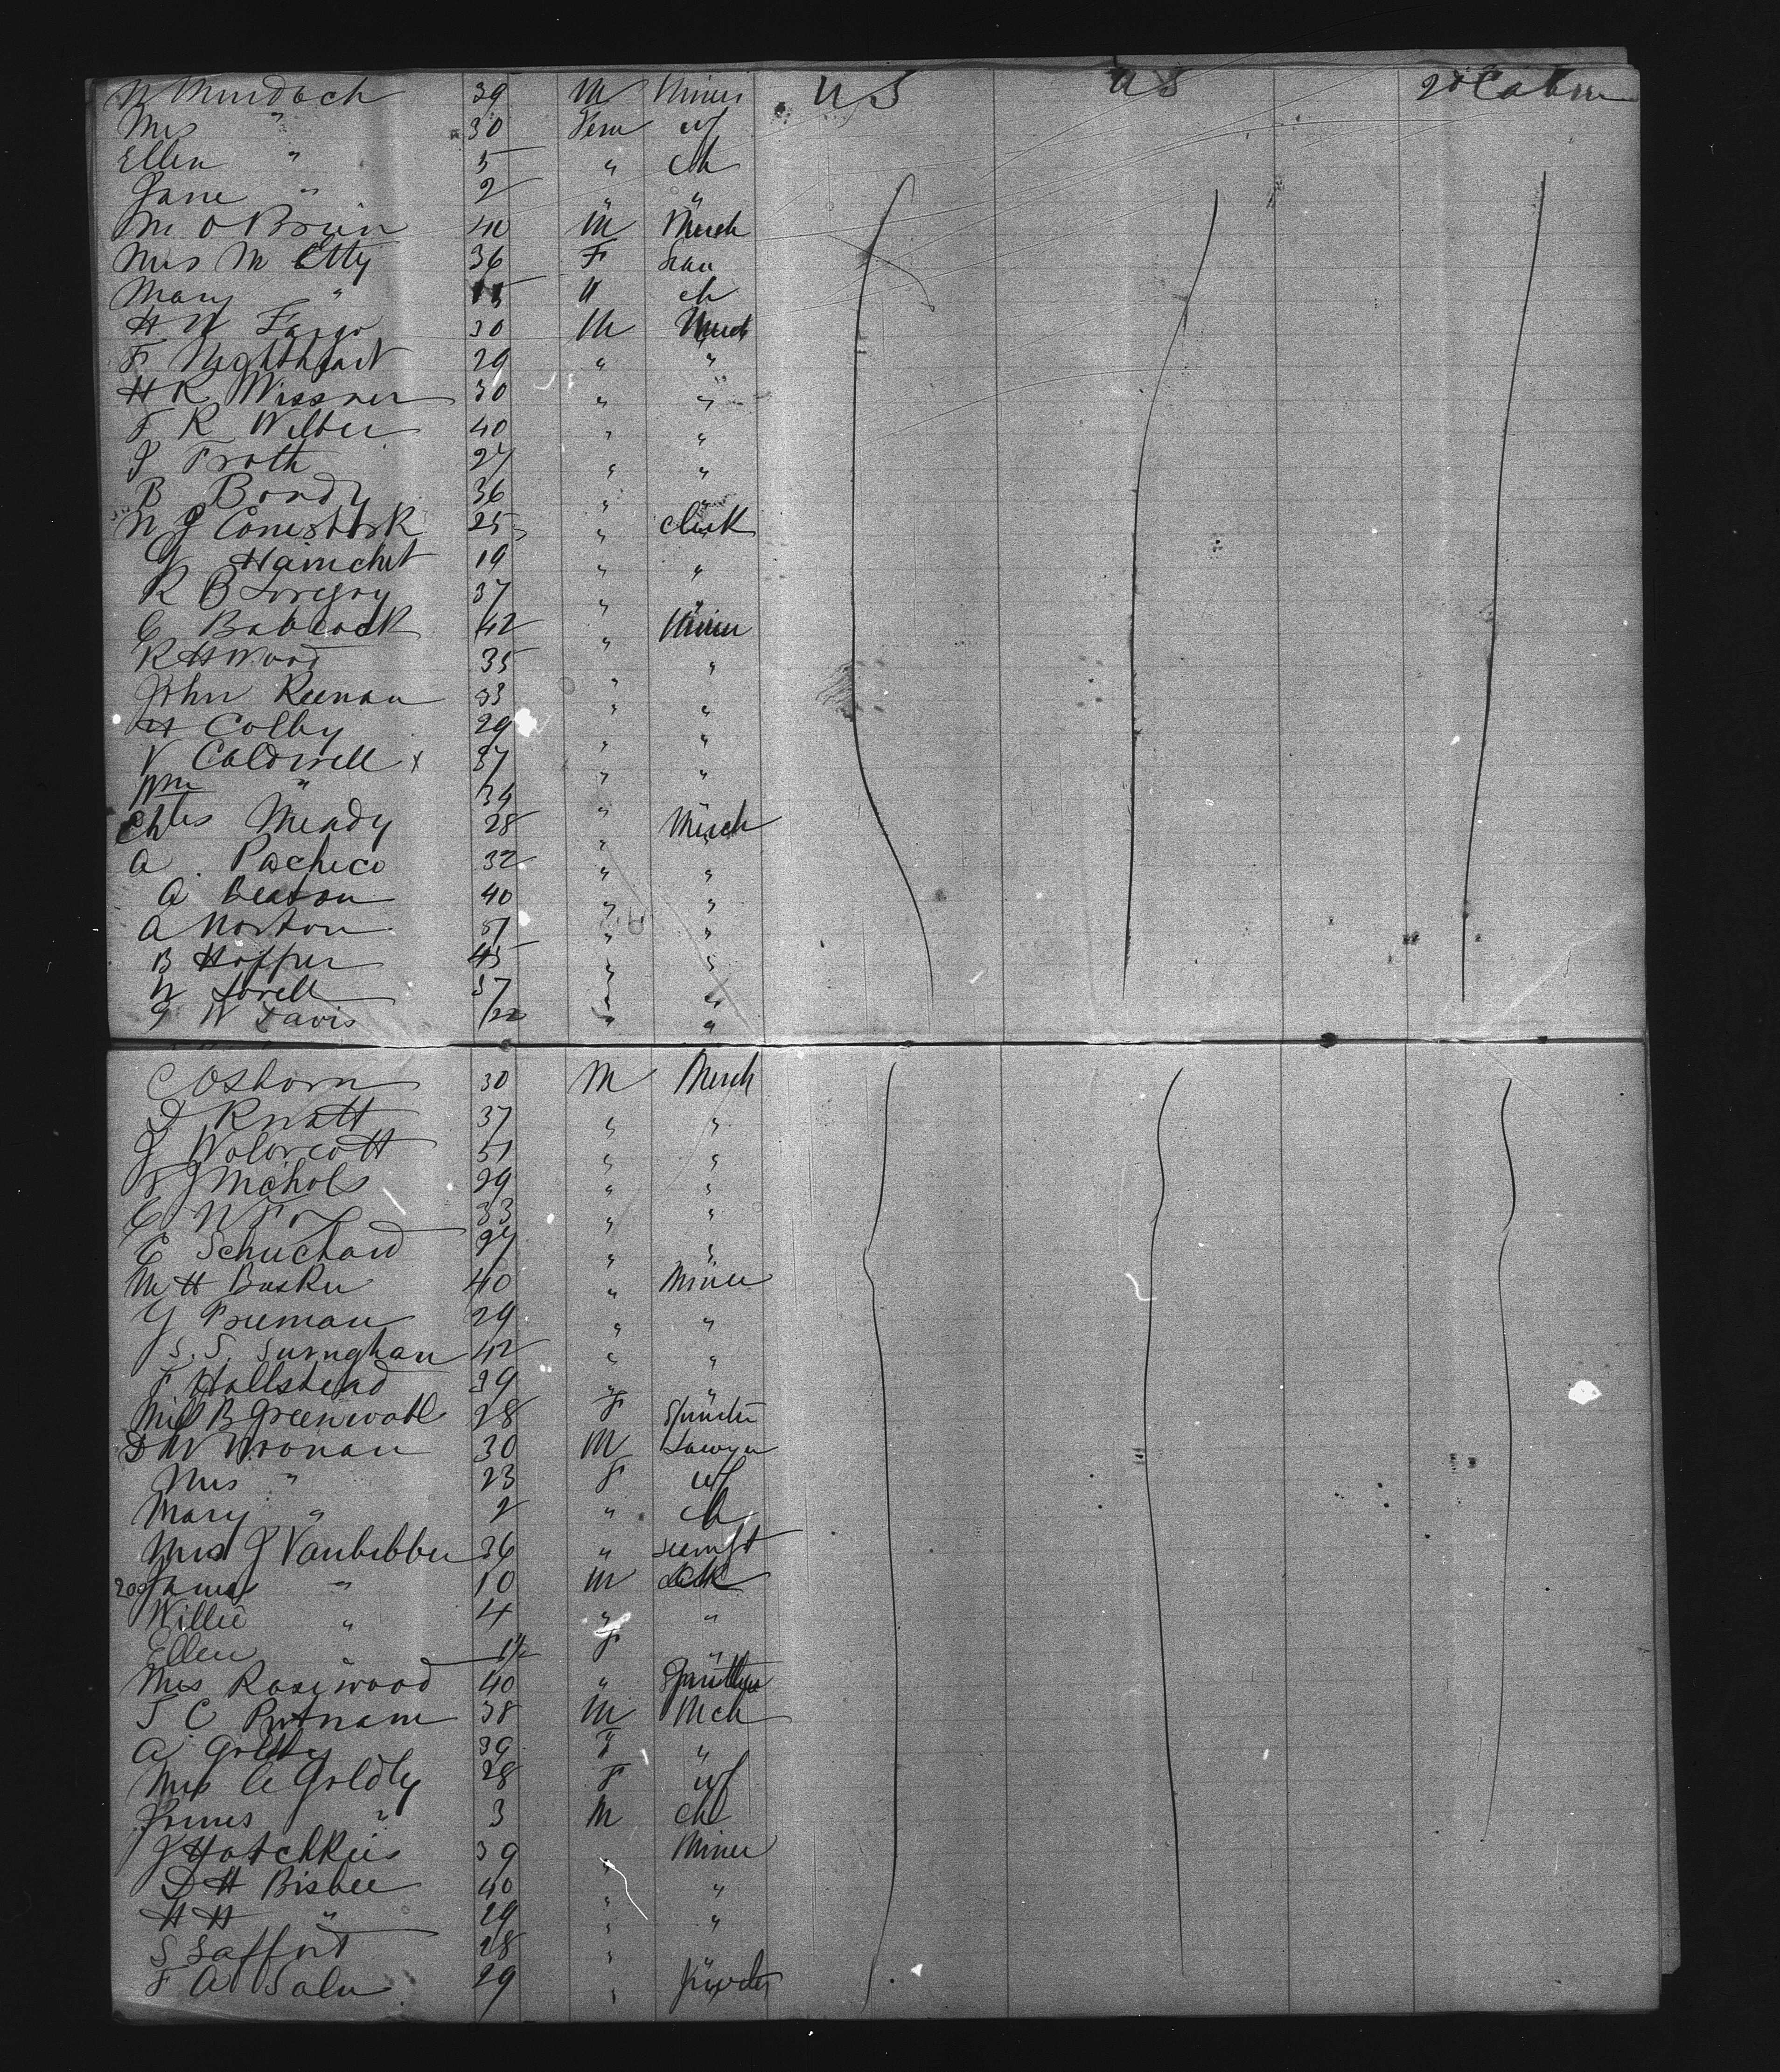 N Murdoch 39 M Miner US US 2d Cabin
Mrs " 30 Fem wf
Ellen " 5 " ch
Jane " 2 " "
M O Brien 40 M Merch
Mrs M Etty 36 F
Mary " " ch
H W Fargo 30 M Merch
F Nighthart 29 " "
H R Wissner 30 " "
F R Wilber 40 " "
J Froth 27 " "
B Bondy 36 " "
N J Comestock 25 " Clerk
G Hainchet 19 " "
R B Loregoy 37 " "
C Babcock 42 " Miner
R H Wood 35 " "
John Keenan 33 " "
H Colby 29 " "
V Caldwell x 37 " "
Wm " 34 "
Chles Meady 28 " Merch
A Pacheco 32 " "
A Deaton 40 " "
A Norton 51 " "
B Hopper 45 " "
N Lovell 37 " "
G W Davis 22 " "
C Osborn 30 M Merch
D Knatt 37 " "
J Wolorcott 51 " "
F J Nichols 29 " "
C W Fox 33 " "
C Schuchard 27 " "
M H Basker 40 " Miner
G Freeman 29 " "
S. S. Surnghan 42 " "
F Hallstead 39 " "
Miss B Greenwall 28 F Spinster
D W Wronan 30 M Lawyer
Mrs " 23 F wf
Mary " 2 " ch
Mrs J Vanbibber 36 " seamst
200 James " 10 M
Willie " 4 " "
Ellen 1 1/2 F "
Mrs Rosewood 40 "
T C Putnam 38 M Mch
A Goldby 39 "
Mrs A Goldby 28 F wf
James " 3 M ch
J Hotchkiis 39 " Miner
D H Bisbee 40 " "
H H " 29 " "
S Saffort 28 "
F A Saln 29 "